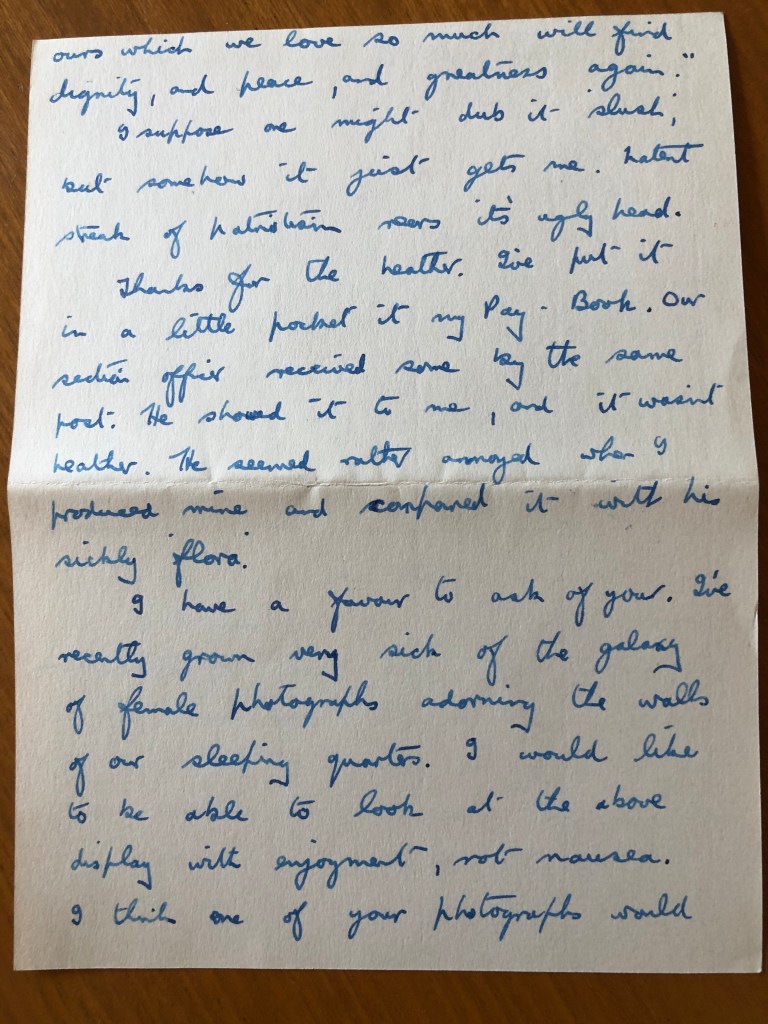 ours which we love so much will find
dignity, and peace, and greatness again."
I suppose one might dub it 'slush',
but somehow it just gets me. Latent
streak of patriotism rears it's ugly head.
Thanks for the heather. I've put it
in a little pocket it my Pay-Book. Our
section officer received some by the same
post. He showed it to me, and it wasn't
heather. He seemed rather annoyed when I
produced mine and compared it with his
sickly 'flora'.
I have a favour to ask of your. I've
recently grown very sick of the galaxy
of female photographs adorning the walls
of our sleeping quarters. I would like
to be able to look at the above
display with enjoyment, not nausea.
I think one of your photographs would